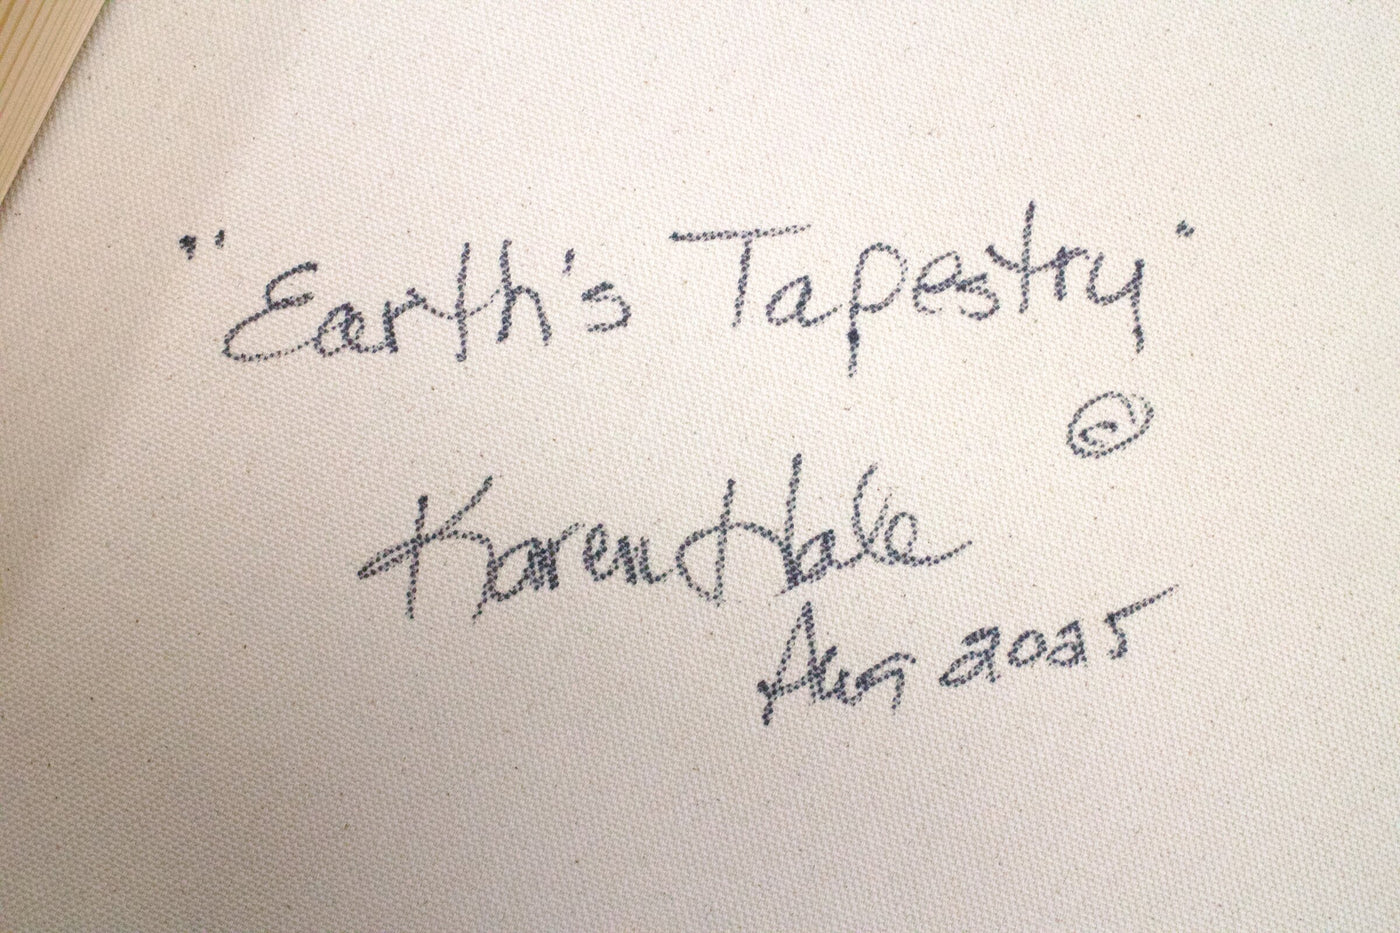 "Earth's Tapestry"
©
Karen Hale
Aug 2025